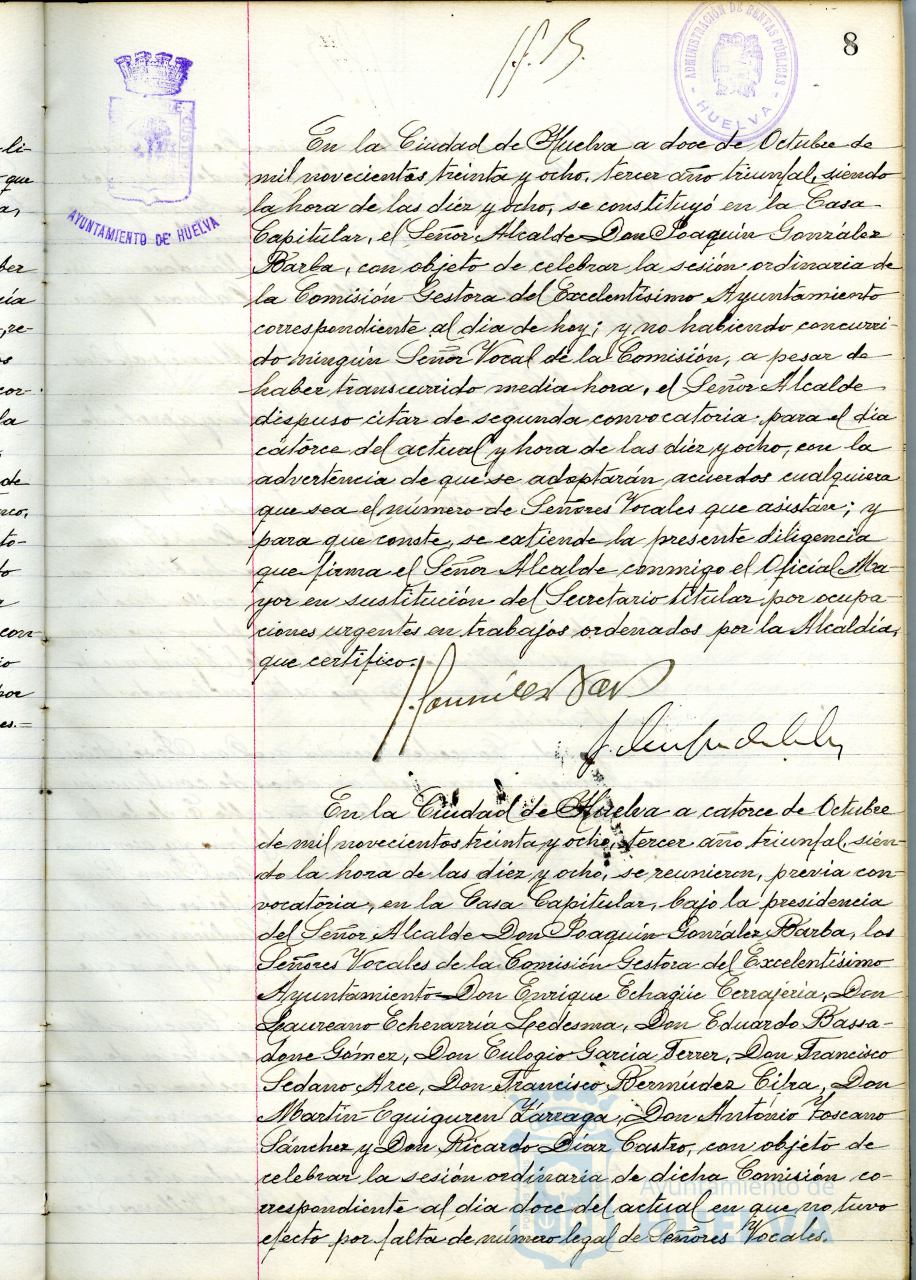 8
ADMINISTRACIÓN DE RENTAS PÚBLICAS
HUELVA
AYUNTAMIENTO DE HUELVA
En la Ciudad de Huelva a doce de Octubre de
mil novecientos treinta y ocho, tercer año triunfal, siendo
la hora de las diez y ocho, se constituyó en la Casa
Capitular, el Señor Alcalde Don Joaquín González
Barba, con objeto de celebrar la sesión ordinaria de
la Comisión Gestora del Excelentísimo Ayuntamiento
correspondiente al dia de hoy; y no habiendo concurri-
do ningún Señor Vocal de la Comisión, a pesar de
haber transcurrido media hora, el Señor Alcalde
dispuso citar de segunda convocatoria para el día
catorce del actual y hora de las diez y ocho, con la
advertencia de que se adoptarán acuerdos cualquiera
que sea el número de Señores Vocales que asistan; y
para que conste, se extiende la presente diligencia
que firma el Señor Alcalde conmigo el Oficial Ma-
yor en sustitución del Secretario titular por ocupa-
ciones urgentes en trabajos ordenados por la Alcaldía,
que certifico.
En la Ciudad de Huelva a catorce de Octubre
de mil novecientos treinta y ocho, tercer año triunfal, sien-
do la hora de las diez y ocho, se reunieron, previa con-
vocatoria, en la Casa Capitular, bajo la presidencia
del Señor Alcalde Don Joaquín González Barba, los
Señores Vocales de la Comisión Gestora del Excelentísimo
Ayuntamiento Don Enrique Echagüe Cerrajería, Don
Laureano Echevarría Ledesma, Don Eduardo Bassa-
done Gómez, Don Eulogio García Ferrer, Don Francisco
Sedano Arce, Don Francisco Bermúdez Cilra, Don
Martín Eguiguren Zárraga, Don Antonio Toscano
Sánchez y Don Ricardo Díaz Castro, con objeto de
celebrar la sesión ordinaria de dicha Comisión co-
rrespondiente al día doce del actual en que no tuvo
efecto por falta de número legal de Señores Vocales.
Ayuntamiento de
HUELVA